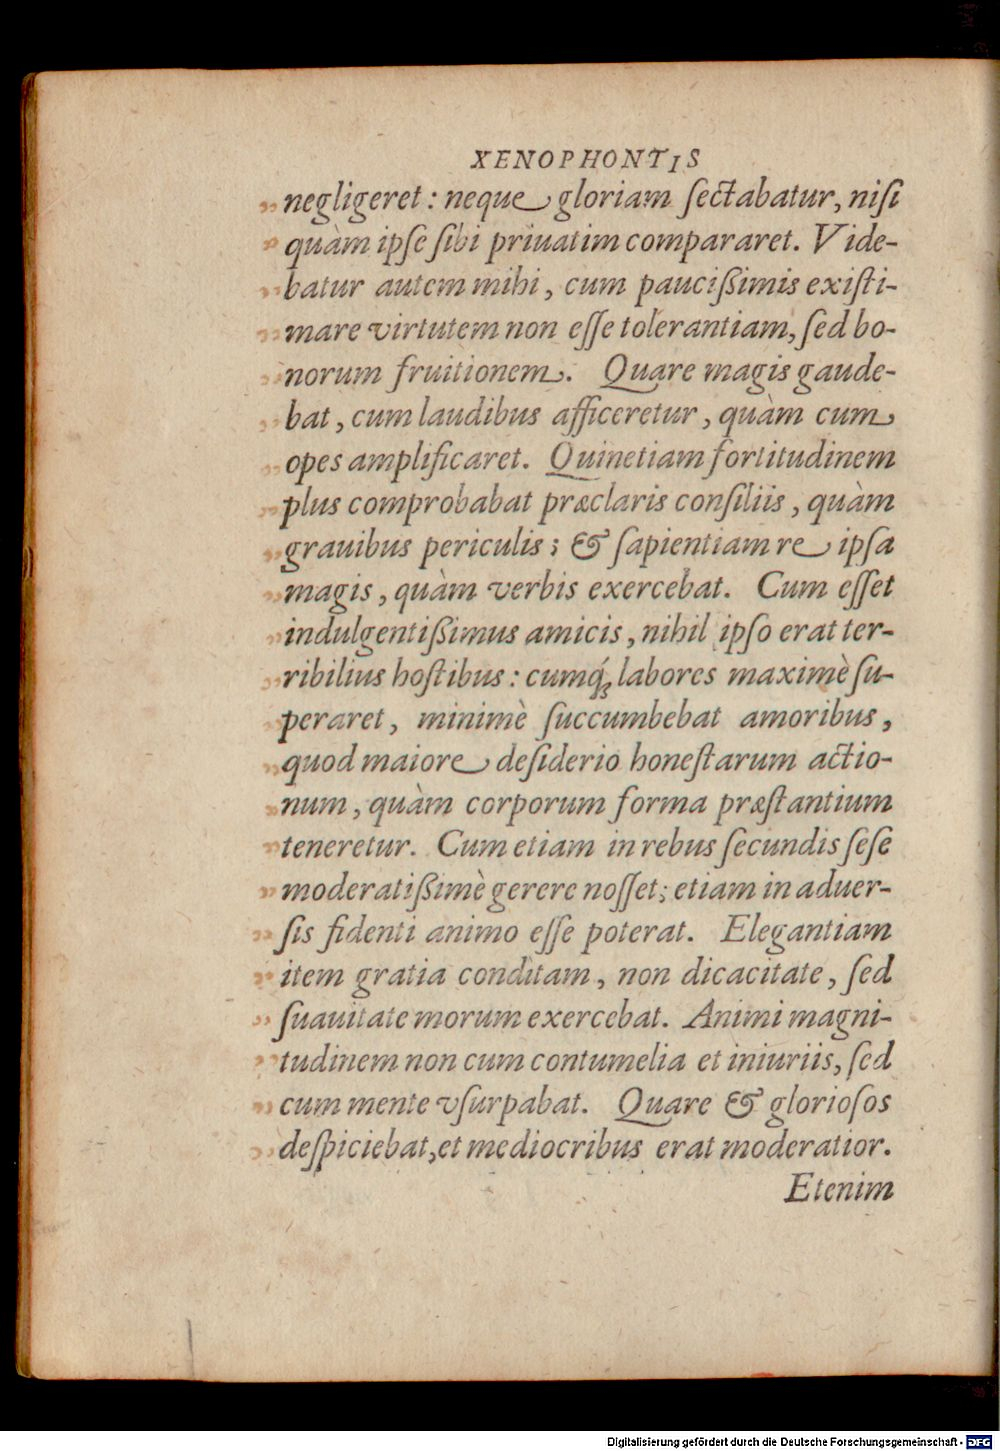 XENOPHONTIS
„negligeret: neque gloriam ſectabatur, niſi
„quàm ipſe ſibi priuatim compararet. Vide-
„batur autem mihi, cum pauciſsimis exiſti-
„mare virtutem non eſſe tolerantiam, ſed bo-
„norum fruitionem. Quare magis gaude-
„bat, cum laudibus afficeretur, quàm cum
„opes amplificaret. Quinetiam fortitudinem
„plus comprobabat præclaris conſiliis, quàm
„grauibus periculis; & ſapientiam re ipſa
„magis, quàm verbis exercebat. Cum eſſet
„indulgentiſsimus amicis, nihil ipſo erat ter-
„ribilius hoſtibus: cumq́ꝫ labores maximè ſu-
„peraret, minimè ſuccumbebat amoribus,
„quod maiore deſiderio honeſtarum actio-
„num, quàm corporum forma præſtantium
„teneretur. Cum etiam in rebus ſecundis ſeſe
„moderatiſsimè gerere noſſet; etiam in aduer-
„ſis fidenti animo eſſe poterat. Elegantiam
„item gratia conditam, non dicacitate, ſed
„ſuauitate morum exercebat. Animi magni-
„tudinem non cum contumelia et iniuriis, ſed
„cum mente vſurpabat. Quare & glorioſos
„deſpiciebat, et mediocribus erat moderatior.
Etenim
Digitalisierung gefördert durch die Deutsche Forschungsgemeinschaft - DFG